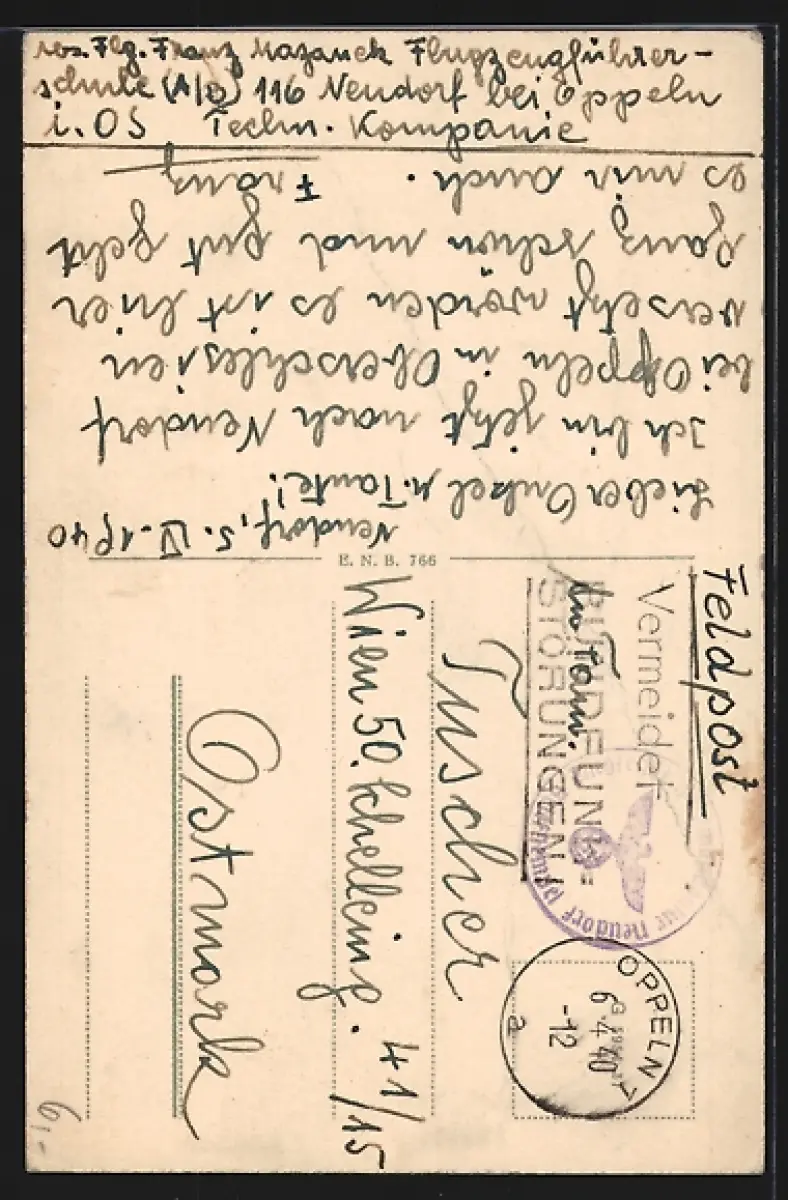 Abs. Flg. Franz Mazanek Flugzeugführer-
schule (A/B) 116 Neudorf bei Oppeln
i. OS Techn. Kompanie
Neudorf, 5. IV. 1940
Lieber Onkel u. Tante!
Ich bin jetzt nach Neudorf
bei Oppeln in Oberschlesien
versetzt worden es ist hier
ganz schön und gut geht
es mir auch. Franz
E. N. B. 766
Feldpost
Vermeidet
RUNDFUNK=
STÖRUNGEN!
An Fam.
Tuscher
Wien 50. Schelleing. 41/15
Ostmark
Neudorf
OPPELN 7
6.4.40
-12
a
6,-